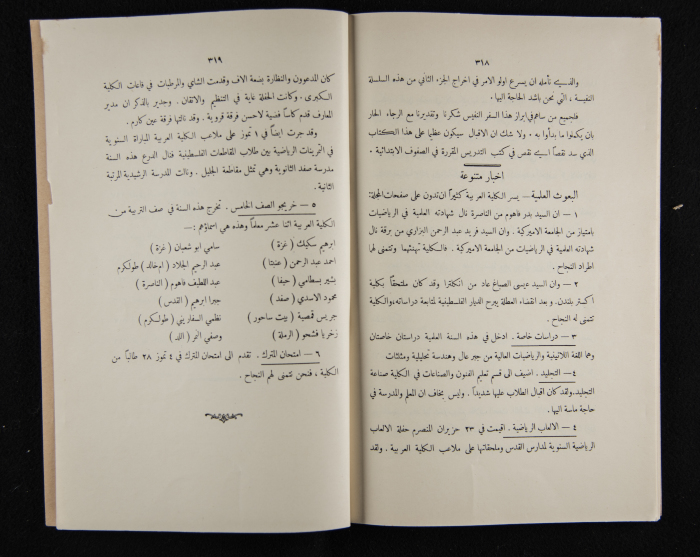 ٣١٨
والذي نأمله ان يسرع اولو الامر في اخراج الجزء الثاني من هذه السلسلة
النفيسة ، التي نحن باشد الحاجة اليها .
فلجميع من ساهم في ابراز هذا السفر النفيس شكرنا وتقديرنا مع الرجاء الحار
بان يكملوا ما بدأوا به . ولا شك ان الاقبال سيكون عظيما على هذا الكتاب
الذي سد نقصاً اي نقص في كتب التدريس المقررة في الصفوف الابتدائية .
اخبار متنوعة
البعوث العلمية — يسر الكلية العربية كثيراً ان تدون على صفحات المجلة:
١ — ان السيد بدر فاهوم من الناصرة نال شهادته العلمية في الرياضيات
بامتياز من الجامعة الاميركية . وان السيد فريد عبد الرحمن البزاري من برقة نال
شهادته العلمية في الرياضيات من الجامعة الاميركية . فالكلية تهنئهما وتتمنى لها
اطراد النجاح .
٢ — وان السيد عيسى الصباغ عاد من انكلترا وقد كان ملتحقاً بكلية
اكستر بلندن . وبعد انقضاء العطلة يبرح الديار الفلسطينية لمتابعة دراساته،والكلية
تتمنى له النجاح .
٣ — دراسات خاصة . ادخل في هذه السنة العلمية دراستان خاصتان
وهما اللغة اللاتينية والرياضيات العالية من جبر عال وهندسة تحليلية ومثلثات
٤ — التجليد . اضيف الى قسم تعليم الفنون والصناعات في الكلية صناعة
التجليد.ولقد كان اقبال الطلاب عليها شديداً . وليس بخاف ان المعلم والمدرسة في
حاجة ماسة اليها .
٤ — الالعاب الرياضية . اقيمت في ٢٣ حزيران المنصرم حفلة الالعاب
الرياضية السنوية لمدارس القدس وملحقاتها على ملاعب الكلية العربية . ولقد
٣١٩
كان المدعوون والنظارة بضعة الاف وقدمت الشاي والمرطبات في قاعات الكلية
الكبرى . وكانت الحفلة غاية في التنظيم والاتقان . وجدير بالذكر ان مدير
المعارف قدم كأساً فضية لاحسن فرقة قروية . وقد نالتها فرقة عين كارم .
وقد جرت ايضاً في ١ تموز على ملاعب الكلية العربية المباراة السنوية
في التمرينات الرياضية بين طلاب المقاطعات الفلسطينية فنال الدرع هذه السنة
مدرسة صفد الثانوية وهي تمثل مقاطعة الجليل . ونالت المدرسة الرشيدية المرتبة
الثانية .
٥ — خريجو الصف الخامس . تخرج هذه السنة في صف التربية من
الكلية العربية اثنا عشر معلماً وهذه هي اسماؤهم :—
ابرهيم سكيك ( غزة ) سامي ابو شعبان ( غزة )
احمد عبد الرحمن ( عنبتا ) عبد الرحيم الجلاد ( ام خالد ) طولكرم
بشير بسطامي ( حيفا ) عبد اللطيف فاهوم ( الناصرة )
محمود الاسدي ( صفد ) جبرا ابرهيم ( القدس )
جريس قمصية ( بيت ساحور ) نظمي السفاريني ( طولكرم )
زخريا فشحو ( الرملة ) وصفي النمر ( اللد )
٦ — امتحان المترك . تقدم الى امتحان المترك في ٤ تموز ٢٨ طالباً من
الكلية ، فنحن نتمنى لهم النجاح .